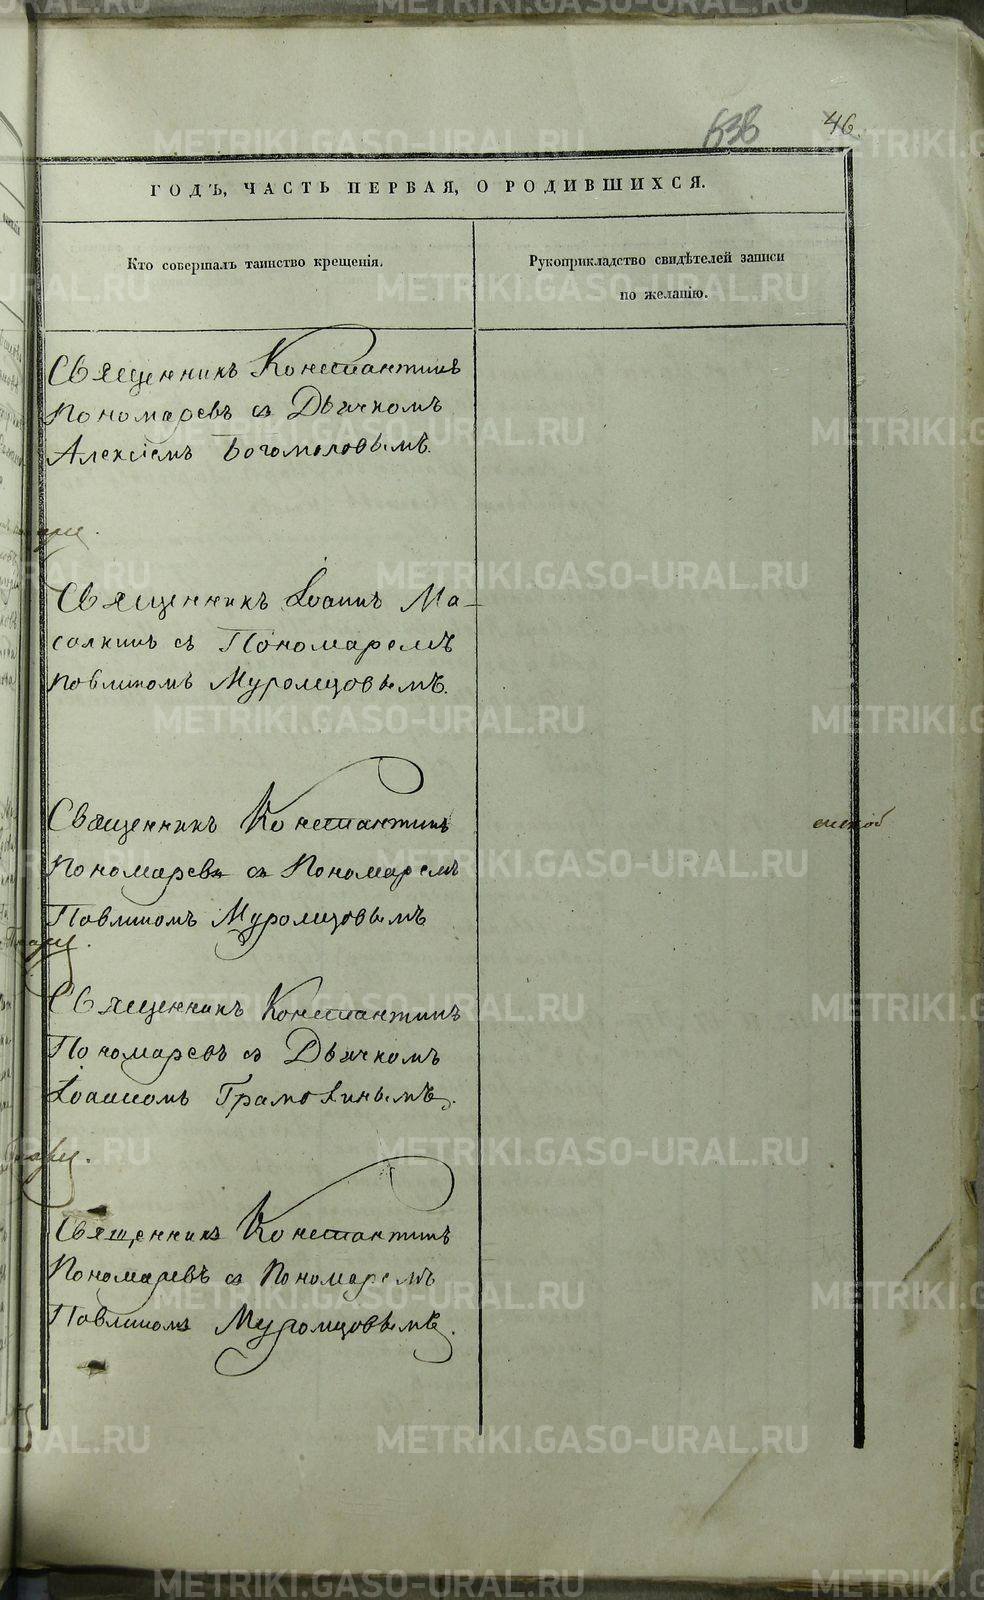 638 46.
ГОДЪ, ЧАСТЬ ПЕРВАЯ, О РОДИВШИХСЯ.
Кто совершалъ таинство крещенія.
Рукоприкладство свидѣтелей записи
по желанію.
Священникъ Константинъ
Пономаревъ съ Дьячкомъ
Алексіемъ Богомоловымъ.
Священникъ Іоаннъ Ма-
салкинъ съ Пономаремъ
Павлиномъ Муромцовымъ.
Священникъ Константинъ
Пономаревъ съ Пономаремъ
Павлиномъ Муромцовымъ
Священникъ Константинъ
Пономаревъ съ Дьячкомъ
Іоанномъ Грамолинымъ.
Священникъ Константинъ
Пономаревъ съ Пономаремъ
Павлиномъ Муромцовымъ.
METRIKI.GASO-URAL.RU